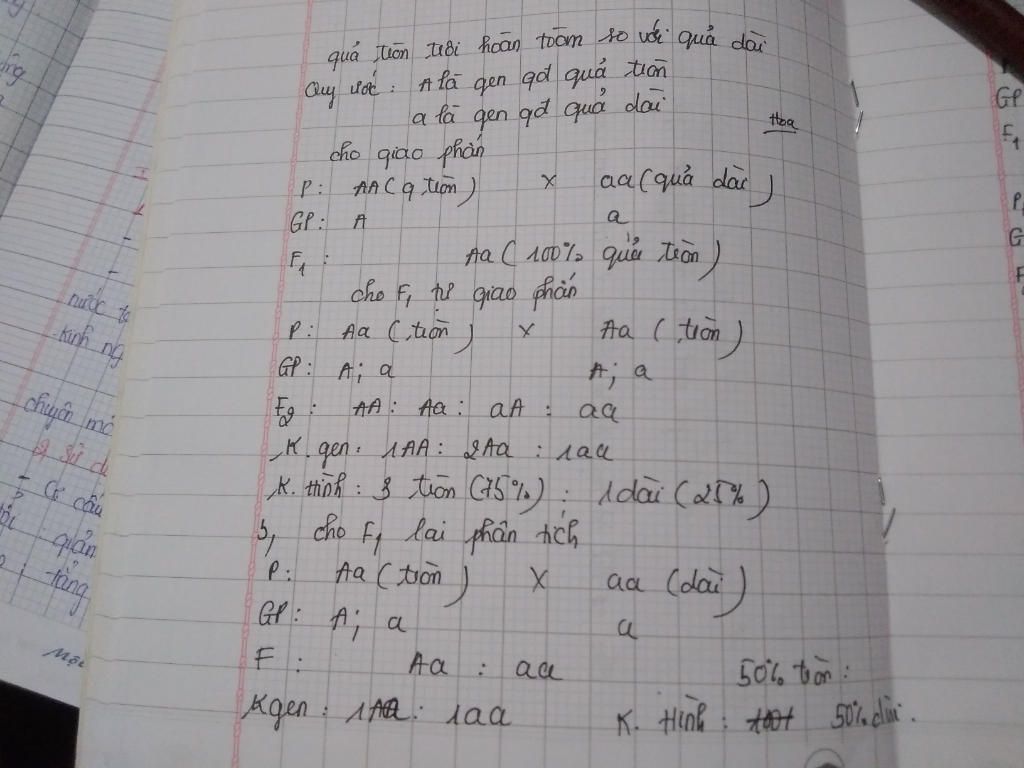 quả tròn trội hoàn toàn so với quả dài
Quy ước : A là gen qđ quả tròn
a là gen qđ quả dài
Hoa
cho giao phấn
P : AA ( q tròn ) X aa ( quả dài )
GP : A a
F1 : Aa ( 100% quả tròn )
cho F1 tự giao phấn
P : Aa ( tròn ) x Aa ( tròn )
GP : A ; a A ; a
F2 : AA : Aa : aA : aa
K. gen : 1AA : 2Aa : 1aa
K. Hình : 3 tròn (75%) : 1 dài (25%)
b, cho F1 lai phân tích
P : Aa ( tròn ) X aa ( dài )
GP : A ; a a
F : Aa : aa 50% tròn :
K gen : 1Aa : 1aa K. Hình : 50% dài .
nước ta
kinh ng
chuyên mô
- Cơ cấu
quản
GP
F1
P
G
F